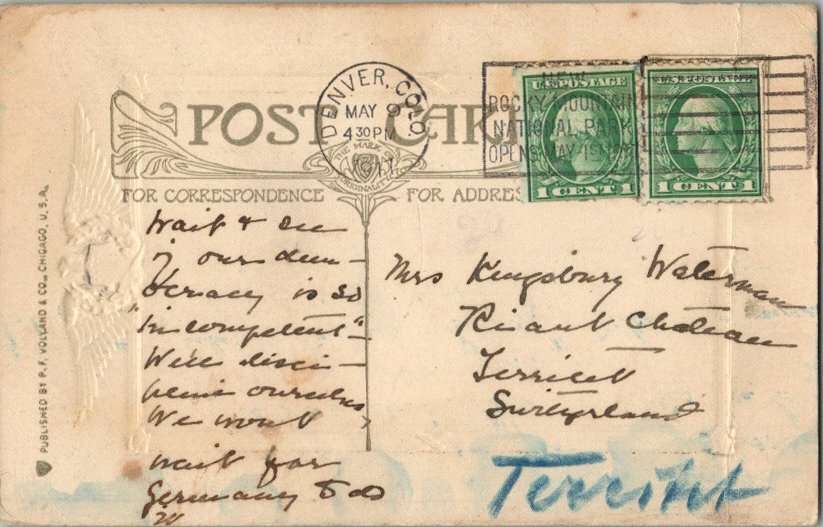 POST CARD
THE MARK OF ORIGINALITY
FOR CORRESPONDENCE
FOR ADDRESS
DENVER, COLO.
MAY 9
4 30 PM
1917
NEW
ROCKY MOUNTAIN
NATIONAL PARK
OPENS MAY 1st
U.S. POSTAGE
1 CENT 1
U.S. POSTAGE
1 CENT 1
PUBLISHED BY P. F. VOLLAND & CO., CHICAGO, U. S. A.
Wait & see
if our dem-
ocracy is so
"Incompetent"-
Will disci-
pline ourselves
We wont
wait for
Germany to do
it
Mrs Kingsbury Waterman
Riant Chateau
Territet
Switzerland
Territet